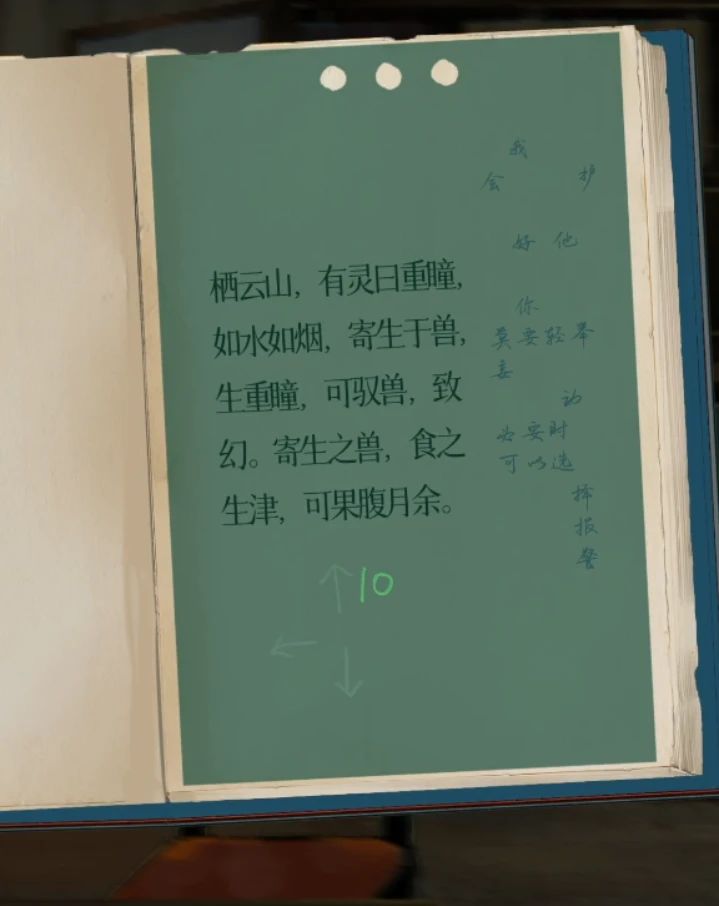 栖云山，有灵曰重瞳，
如水如烟，寄生于兽，
生重瞳，可驭兽，致
幻。寄生之兽，食之
生津，可果腹月余。
我
会 护
好 他
你
莫要轻举
妄
动
必要时
可以选
择
报
警
↑10
←
↓